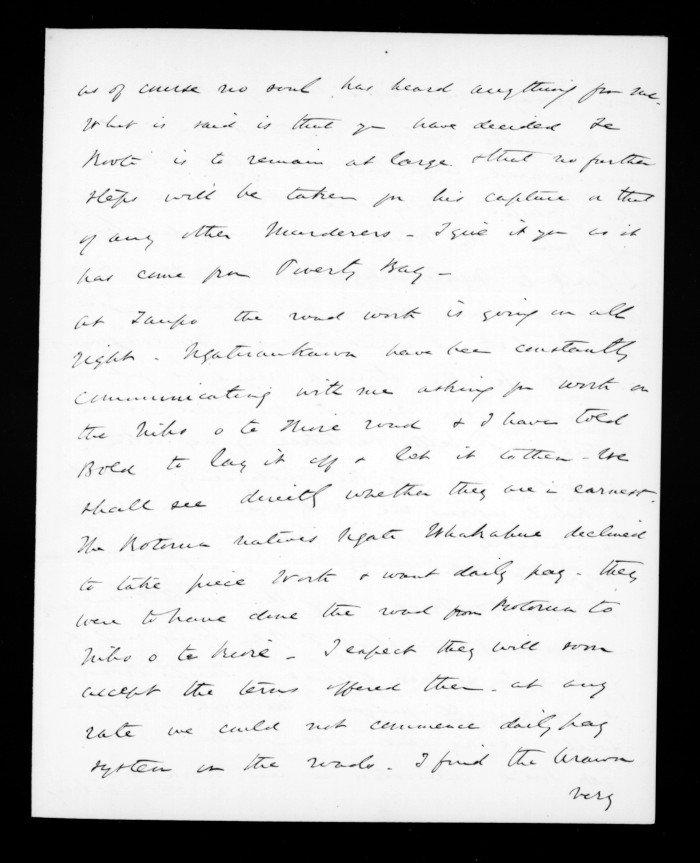 as of course no soul has heard anything from me.
What is said is that you have decided Te
Kooti is to remain at large & that no further
steps will be taken for his capture or that
of any other Murderers - I give it you as it
has come from Poverty Bay -
At Taupo the road work is going on all
right. Ngatiraukawa have been constantly
communicating with me asking for work on
the Niho o te Kiore road & I have told
Bold to lay it off & let it to them - We
shall see directly whether they are in earnest.
The Rotorua natives Ngate Whakahue declined
to take piece Work & want daily pay - they
were to have done the road from Rotorua to
Niho o te Kiore - I expect they will soon
accept the terms offered them - at any
rate we could not commence daily pay
system on the roads - I find the Arawa
very